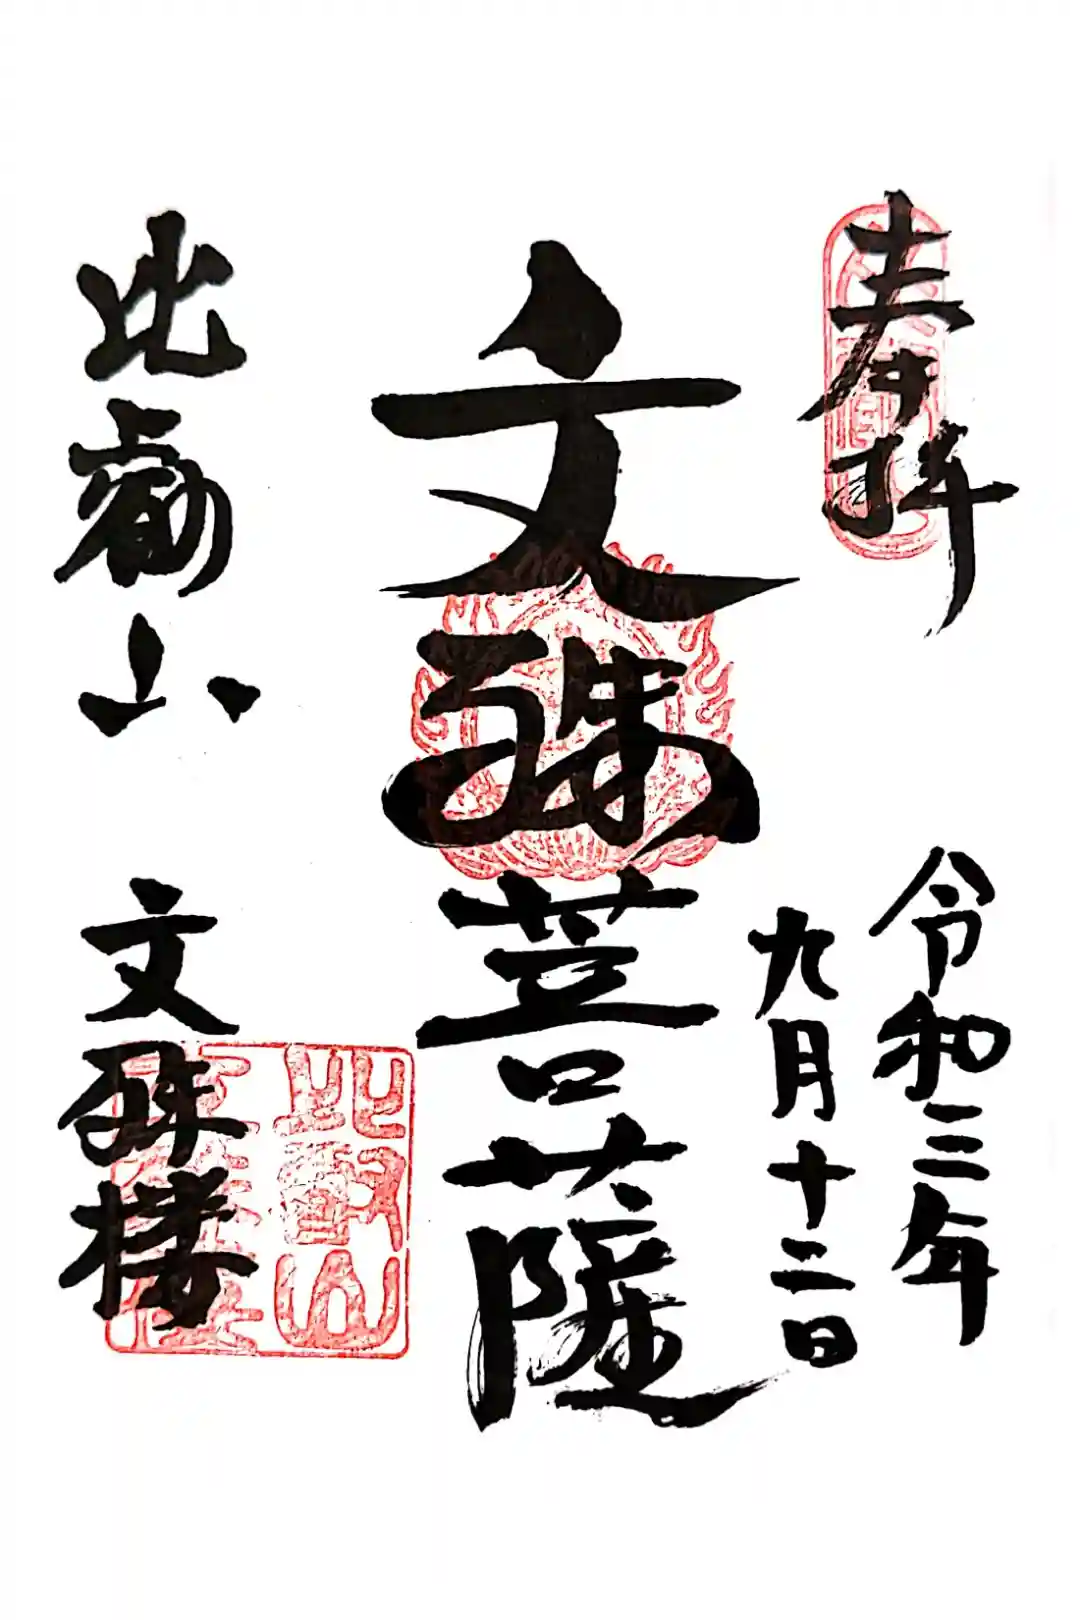 奉拝
令和三年
九月十二日
文殊菩薩
比叡山
文殊楼
比叡山